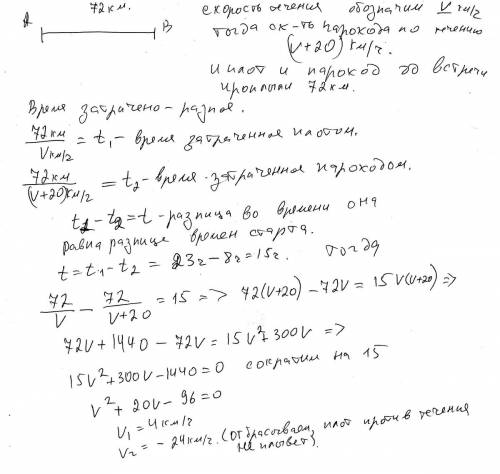 72км.
A B
скорость течения обозначим V км/ч
тогда ск-ть парохода по течению
(V+20) км/ч.
и плот и пароход до встречи
проплыли 72км.
Время затрачено - разное.
72км / Vкм/ч = t₁ - время затраченное плотом.
72км / (V+20)км/ч = t₂ - время затраченное пароходом.
t₁ - t₂ = t - разница во времени она
равна разнице времен старта.
t = t₁ - t₂ = 23ч - 8ч = 15ч. тогда
72/V - 72/(V+20) = 15 => 72(V+20) - 72V = 15V(V+20) =>
72V + 1440 - 72V = 15V² + 300V =>
15V² + 300V - 1440 = 0 сократим на 15
V² + 20V - 96 = 0
V₁ = 4км/ч
V₂ = - 24км/ч. (отбрасываем, плот против течения
не плывет).